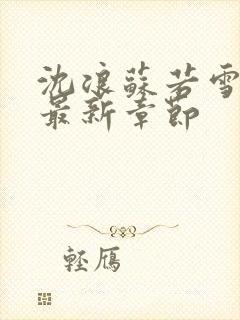 沈浪蘇若雪
最新章節
輕鴈